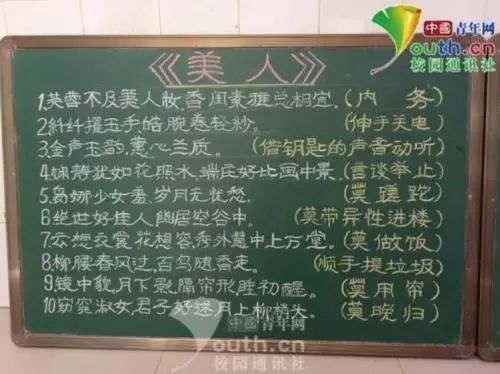 中國青年网
Youth.cn
校园通讯社
《美人》
1.芙蓉不及美人妆,香闺素雅总相宜。(内务)
2.纤纤擢玉手,皓腕卷轻纱。(伸手关电)
3.金声玉韵,蕙心兰质。(借钥匙的声音动听)
4.娴静犹如花照水,端庄好比画中景。(言谈举止)
5.袅娜少女羞,岁月无忧愁。(莫蹉跎)
6.绝世好佳人,幽居空谷中。(莫带异性进楼)
7.云想衣裳花想容,秀外慧中上厅堂。(莫做饭)
8.柳腰春风过,百鸟随香走。(顺手提垃圾)
9.镜中貌,月下影,隔帘形,胜初醒。(莫用帘)
10.窈窕淑女,君子好逑,月上柳梢头。(莫晚归)
中國青年网
Youth.cn
校园通讯社